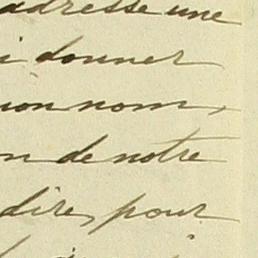 adresse une
i donner
mon nom,
n de notre
dire, pour